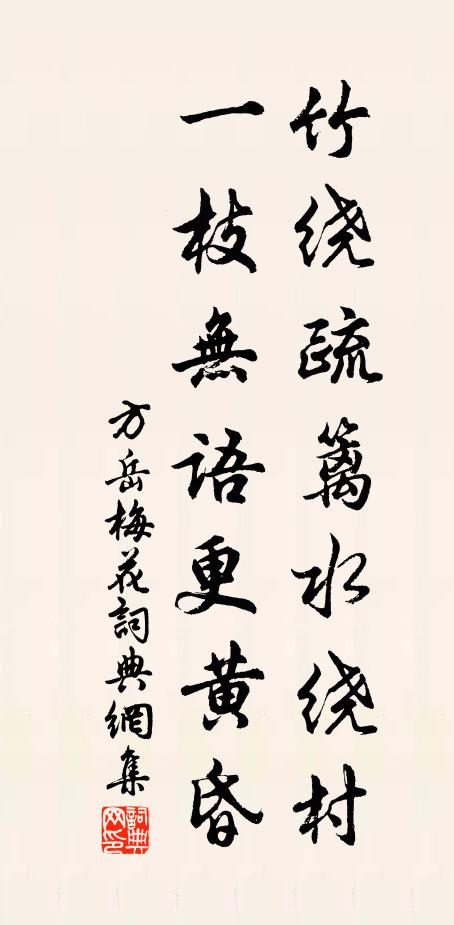 竹绕疏篱水绕村
一枝無语更黄昏
方岳梅花詞典網集
詞典网印